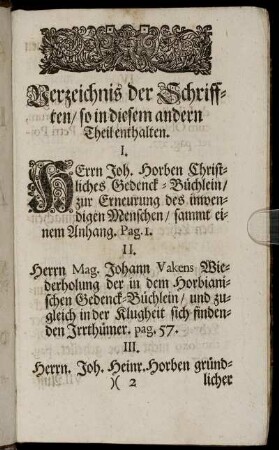 Verzeichnis der Schriff-
ten/ so in diesem andern
Theil enthalten.
I.
HErrn Joh. Horben Christ-
liches Gedenck-Büchlein/
zur Erneurung des inwen-
digen Menschen/ sammt ei-
nem Anhang. Pag. 1.
II.
Herrn Mag. Johann Vakens Wie-
derholung der in dem Horbiani-
schen Gedenck-Büchlein/ und zu-
gleich in der Klugheit sich finden-
den Irrthümer. pag. 57.
III.
Herrn. Joh. Heinr. Horben gründ-
)( 2 licher